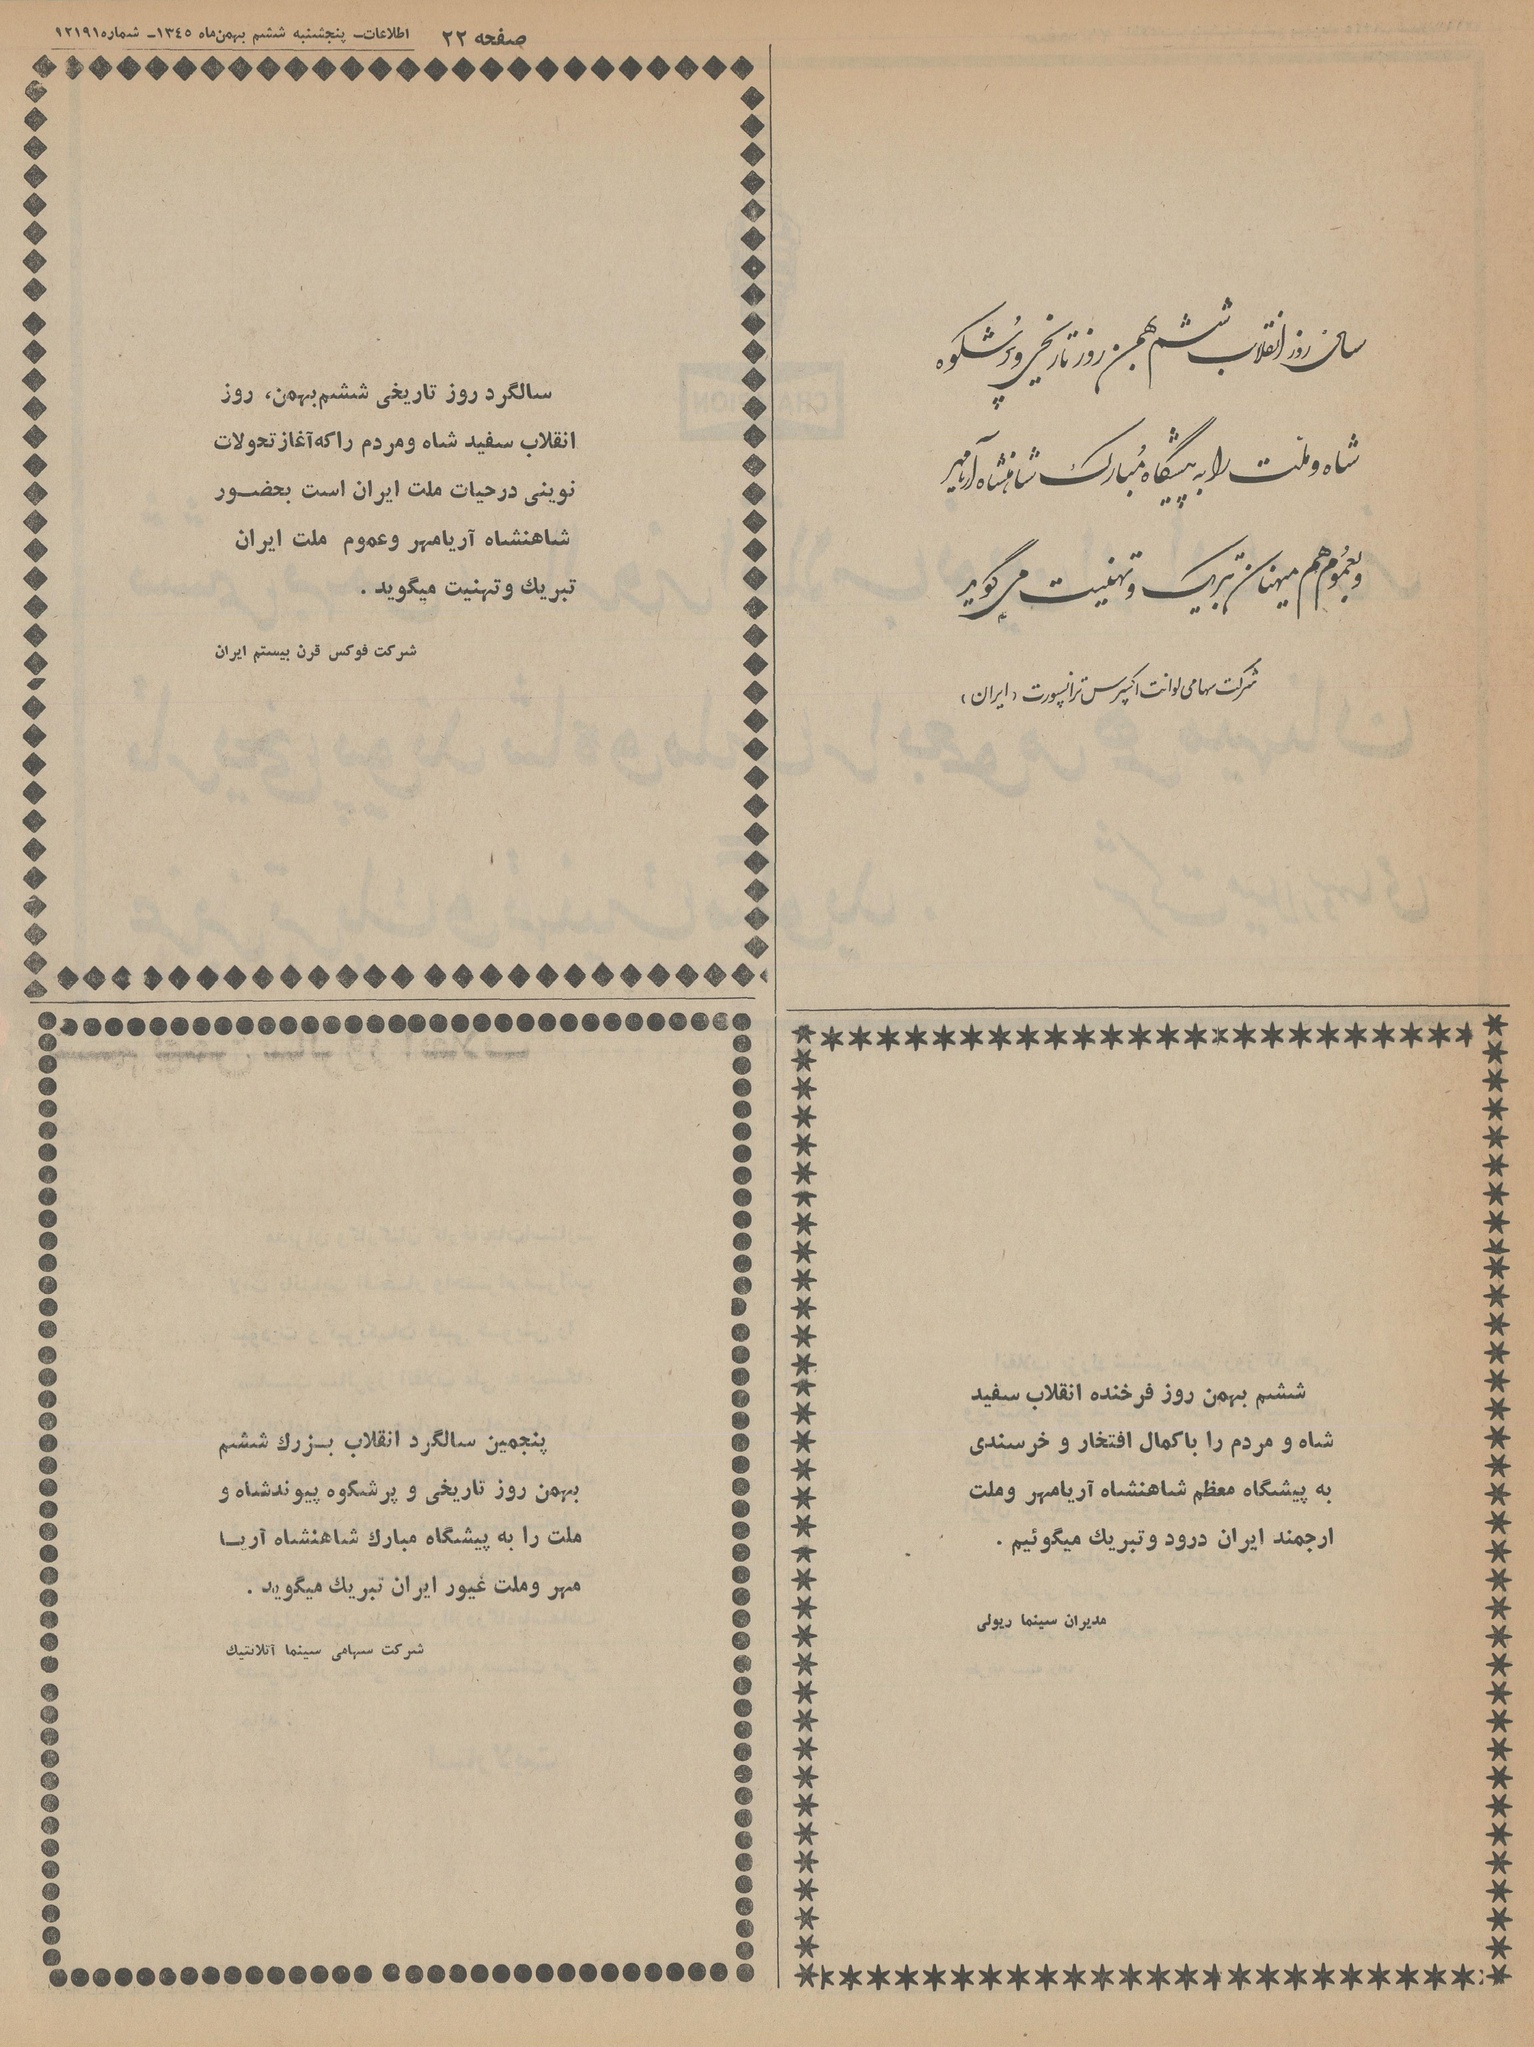 صفحه ٢٢
اطلاعات- پنجشنبه ششم بهمن‌ماه ١٣٤٥- شماره ١٢١٩١
روز انقلاب ششم بهمن روز تاریخی و پرشکوه
شاه و ملت را به پیشگاه مبارک شاهنشاه آریامهر
و بعموم هم میهنان تبریک و تهنیت می گوید
شرکت سهامی لوانت اکسپرس ترانسپورت (ایران)
سالگرد روز تاریخی ششم بهمن، روز
انقلاب سفید شاه ومردم راکه آغاز تحولات
نوینی درحیات ملت ایران است بحضـور
شاهنشاه آریامهر وعموم ملت ایران
تبریك وتهنیت میگوید .
شرکت فوکس قرن بیستم ایران
ششم بهمن روز فرخنده انقلاب سفید
شاه و مردم را باکمال افتخار و خرسندی
به پیشگاه معظم شاهنشاه آریامهر وملت
ارجمند ایران درود وتبریك میگوئیم .
مدیران سینما ریولی
پنجمین سالگرد انقلاب بـزرك ششم
بهمن روز تاریخی و پرشکوه پیوندشاه و
ملت را به پیشگاه مبارك شاهنشاه آریـا
مهر وملت غیور ایران تبریك میگوید .
شرکت سهامی سینما آتلانتیك